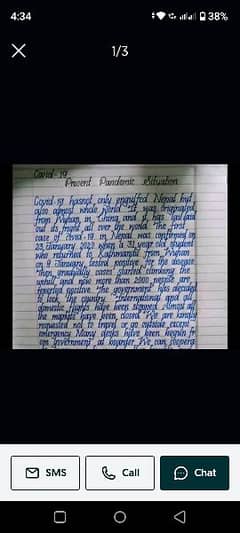 4:34
38%
1/3
Covid-19
Present Pandemic Situation
Covid-19 hasnot only engulfed Nepal but
also almost whole World. It was originated
from Wuhan, in China and it has
out its fright all over the world. The first
case of Covid-19 in Nepal was confirmed on
23 January, 2020 when a 31 year old student
who returned to Kathmandu from Wuhan
on 9 January, tested positive for the disease
then gradually cases started climbing the
uphill and now more than 2000 people are
reported positive. The government has decided
to lock the country. International and all
domestic flights have been stopped. Almost all
the markets have been closed. We are kindly
requested not to travel or go outside except
emergency. Many desks have been
government at boarder. We can
SMS
Call
Chat